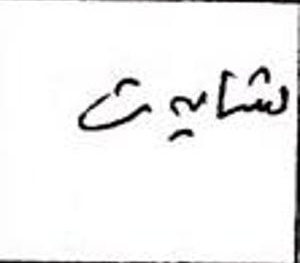 شایست